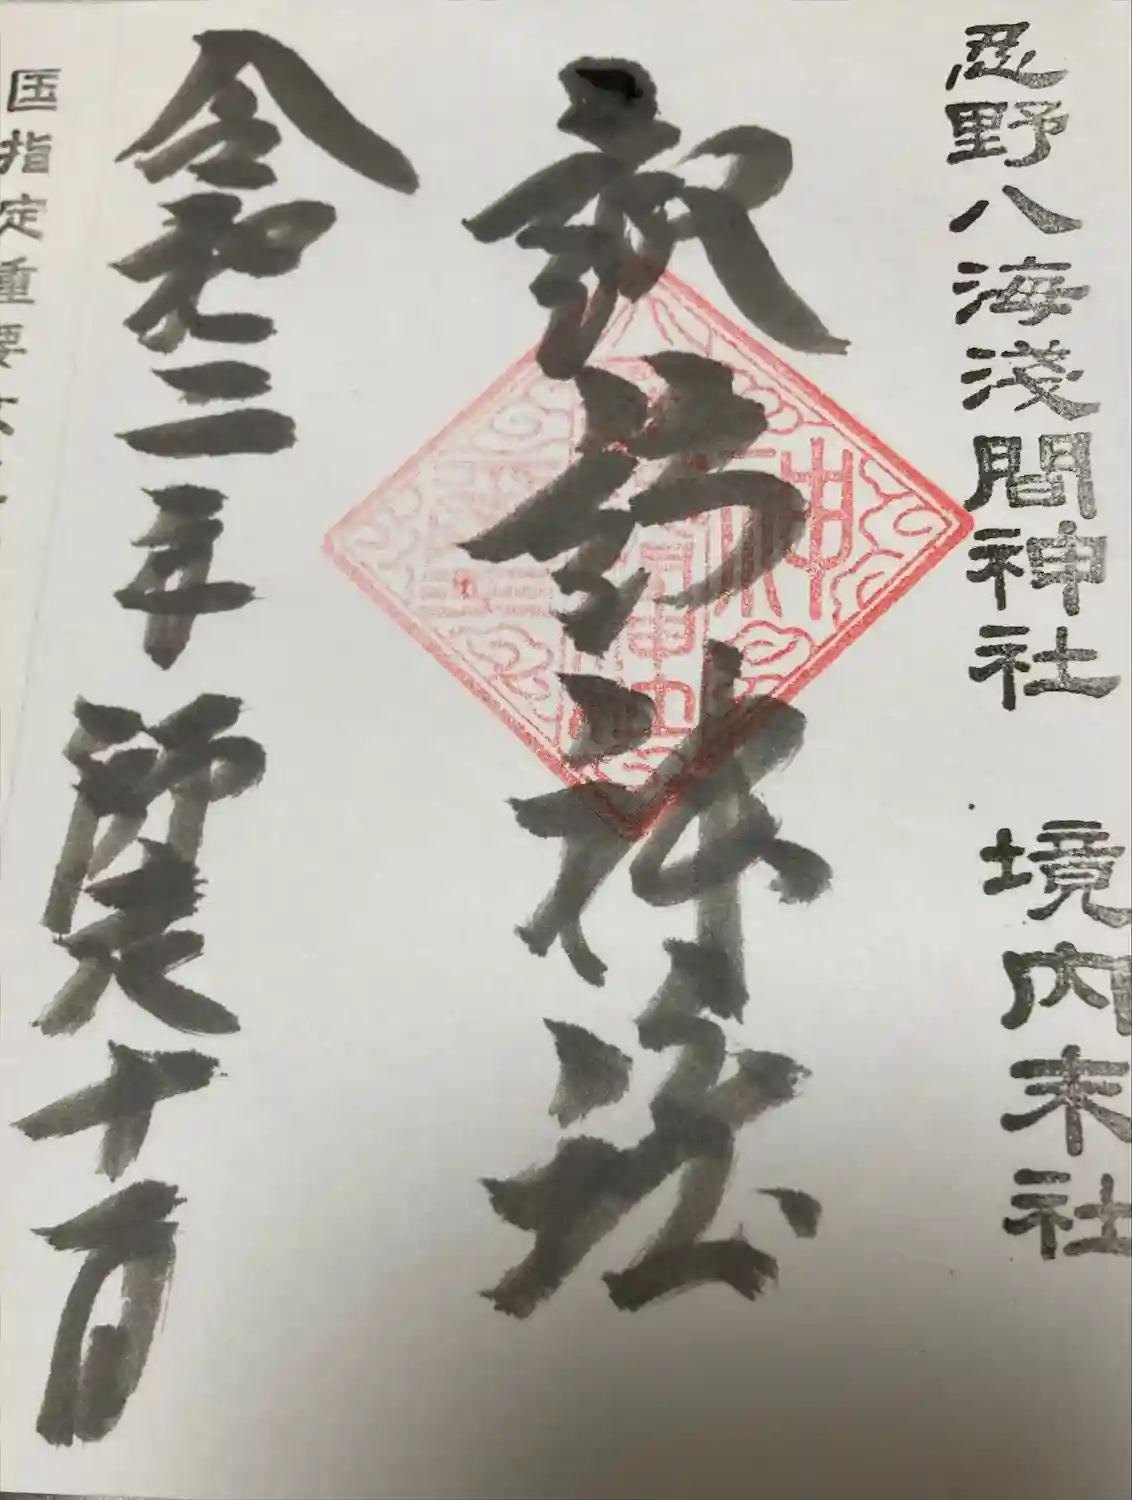 忍野八海淺間神社 境内末社
諏訪神社
令和二年師走十日
国指定重要